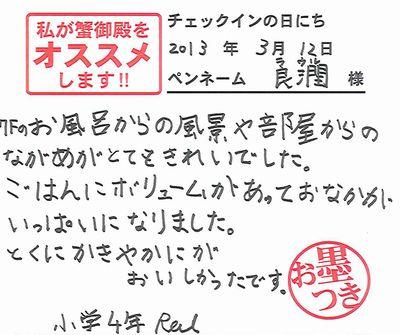 私が蟹御殿を
オススメ
します!!
チェックインの日にち
2013 年 3月 12日
ペンネーム 良潤 様
7Fのお風呂からの風景や部屋からの
ながめがとてもきれいでした。
ごはんにボリュームがあっておなかが
いっぱいになりました。
とくにかきやかにが
おいしかったです。
小学4年
お墨つき